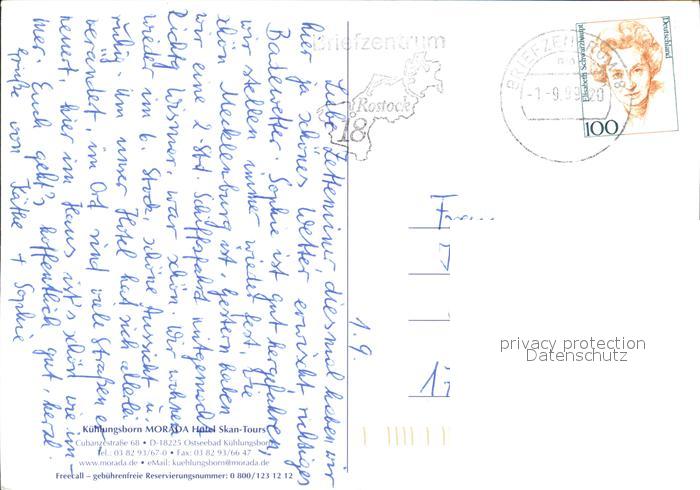 1. 9.
hier ja schönes Wetter erwischt richtiges
Badewetter. Sophie ist gut hergefahren,
wir stellen immer wieder fest, wie
schön Mecklenburg ist, gestern haben
wir eine 2 Std. Schiffsfahrt mitgemacht
Richtg Wismar, war schön. Wir wohnen
wieder im 6. Stock, schöne Aussicht u.
ruhig. Um unser Hotel hat sich allerlei
verändert, im Ort sind viele Straßen er-
neuert. hier im Haus ist's schön wie im-
mer. Euch geht's hoffentlich gut, herzl.
Grüße von Käthe + Sophie
Briefzentrum
Rostock
18
BRIEFZENTRUM
-1.-9.99-20
18
Deutschland
Elisabeth Schwarzhaupt
100
Fam....
privacy protection
Datenschutz
Kühlungsborn MORADA Hotel Skan-Tours
Cubanzestraße 68 • D-18225 Ostseebad Kühlungsborn
Tel.: 03 82 93/67-0 • Fax: 03 82 93/66 47
www.morada.de • eMail: kuehlungsborn@morada.de
Freecall – gebührenfreie Reservierungsnummer: 0 800/123 12 12